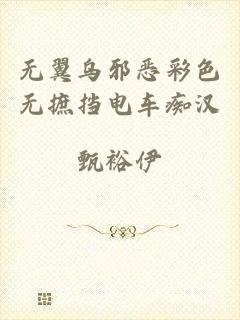 无翼乌邪恶彩色
无摭挡电车痴汉
甄裕伊